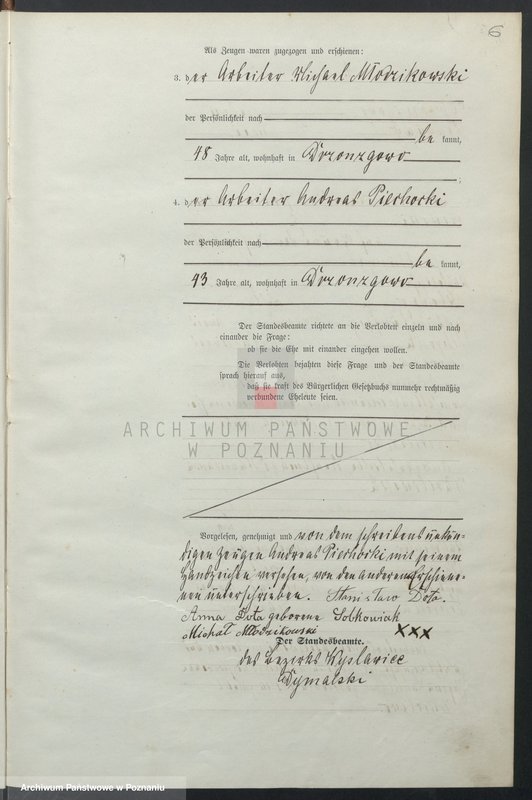 6
Als Zeugen waren zugezogen und erschienen:
3. der Arbeiter Michael Młodzikowski
der Persönlichkeit nach
be kannt,
48 Jahre alt, wohnhaft in Dronzgowo
4. der Arbeiter Andreas Piechocki
der Persönlichkeit nach
be kannt,
43 Jahre alt, wohnhaft in Dronzgowo
Der Standesbeamte richtete an die Verlobten einzeln und nach
einander die Frage:
ob sie die Ehe mit einander eingehen wollen.
Die Verlobten bejahten diese Frage und der Standesbeamte
sprach hierauf aus,
daß sie kraft des Bürgerlichen Gesetzbuchs nunmehr rechtmäßig
verbundene Eheleute seien.
ARCHIWUM PAŃSTWOWE
W POZNANIU
Vorgelesen, genehmigt und von dem schreibensunkun-
digen Zeugen Andreas Piechocki mit seinem
Handzeichen versehen, von den anderen Erschiene-
nen unterschrieben. Stanisław Dota.
Anna Dota geborene Sobkowiak
Michał Młodzikowski xxx
Der Standesbeamte.
des Bezirks
Archiwum Państwowe w Poznaniu